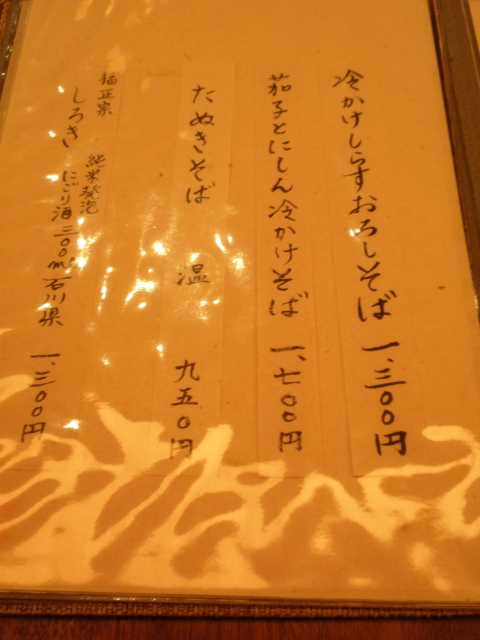 冷かけしらすおろしそば 一、三〇〇円
茄子とにしん冷かけそば 一、七〇〇円
たぬきそば 温 九五〇円
福正宗 純米発泡
しろき にごり酒 三〇〇ml 石川県 一、三〇〇円